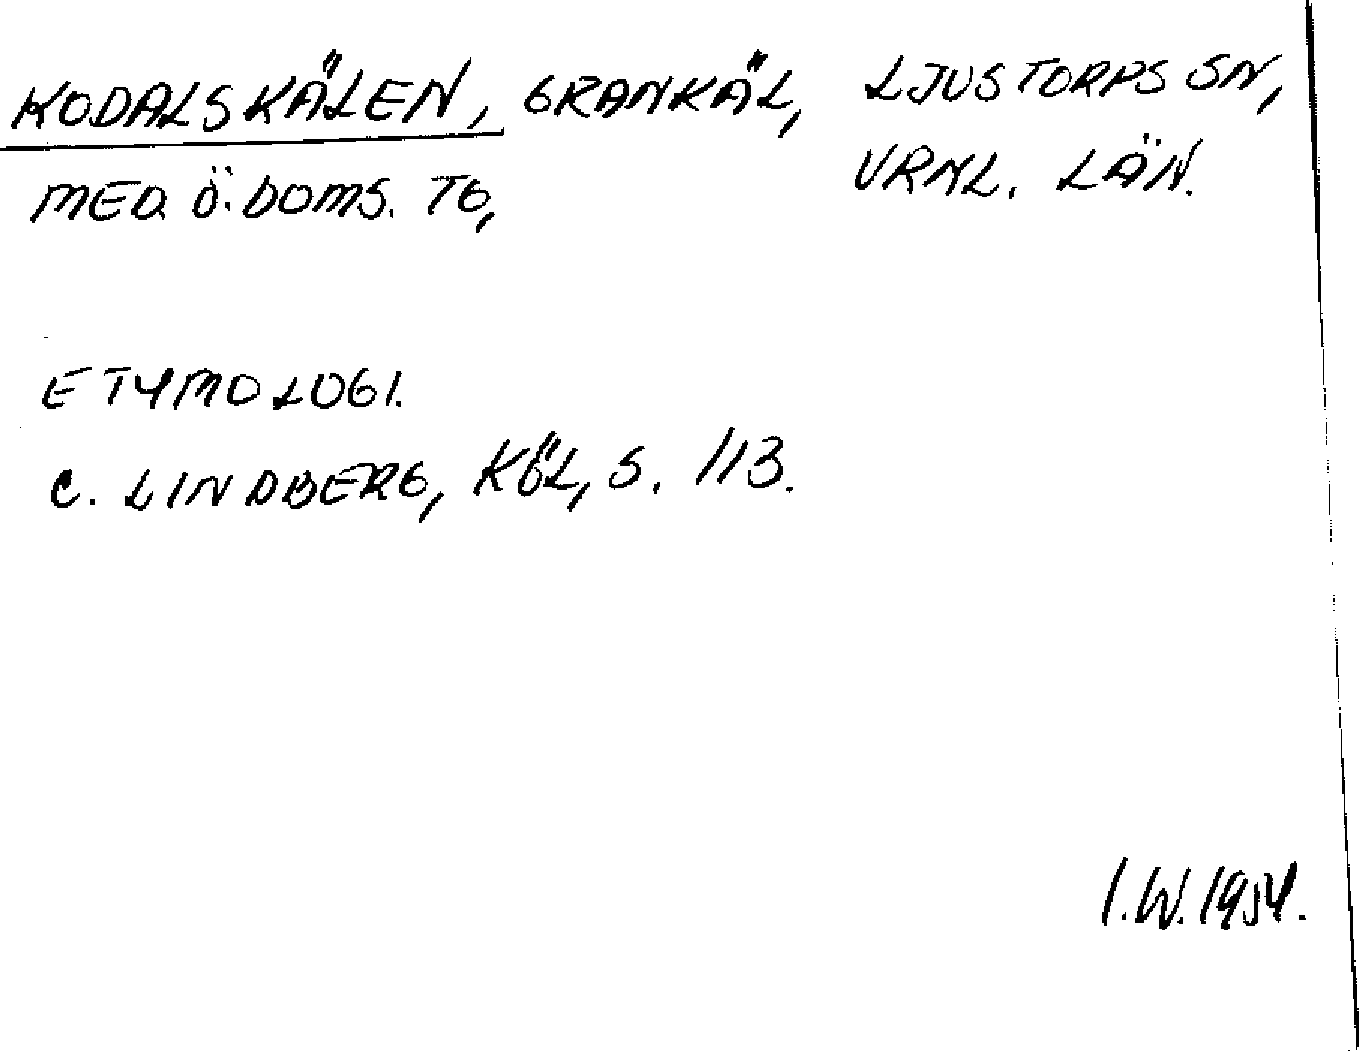 KODALSKÄLEN, GRANKÄL, LJUSTORPS SN,
MED. Ö. DOMS. TG, VRNL. LÄN.
ETYMOLOGI.
C. LINDBERG, KÖL, S. 113.
I.W. 1954.